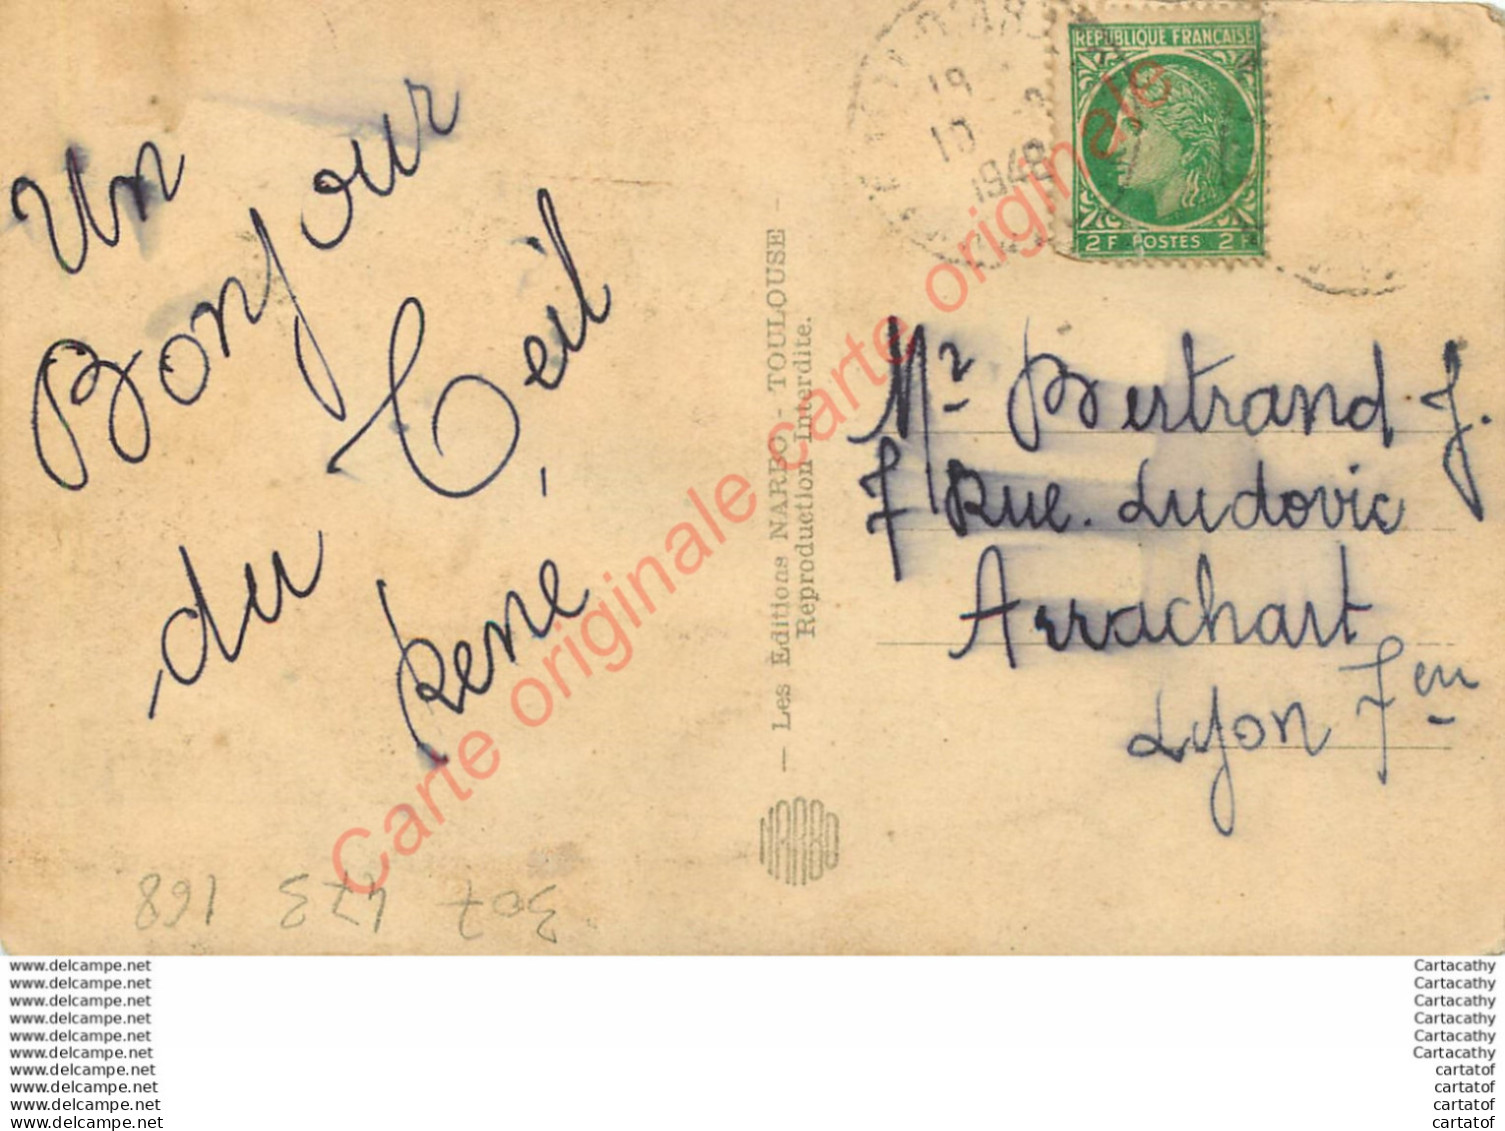 Un
Bonjour
du Teil
René
19
10
1948
RÉPUBLIQUE FRANÇAISE
2F POSTES 2F
— Les Editions NARBO - TOULOUSE —
Reproduction Interdite.
NARBO
Mr Bertrand J.
7 Rue. Ludovic
Arrachart
Lyon 7em
307 473 168
Carte originale carte originale
Carte originale
www.delcampe.net
www.delcampe.net
www.delcampe.net
www.delcampe.net
www.delcampe.net
www.delcampe.net
www.delcampe.net
www.delcampe.net
www.delcampe.net
www.delcampe.net
Cartacathy
Cartacathy
Cartacathy
Cartacathy
Cartacathy
Cartacathy
cartatof
cartatof
cartatof
cartatof